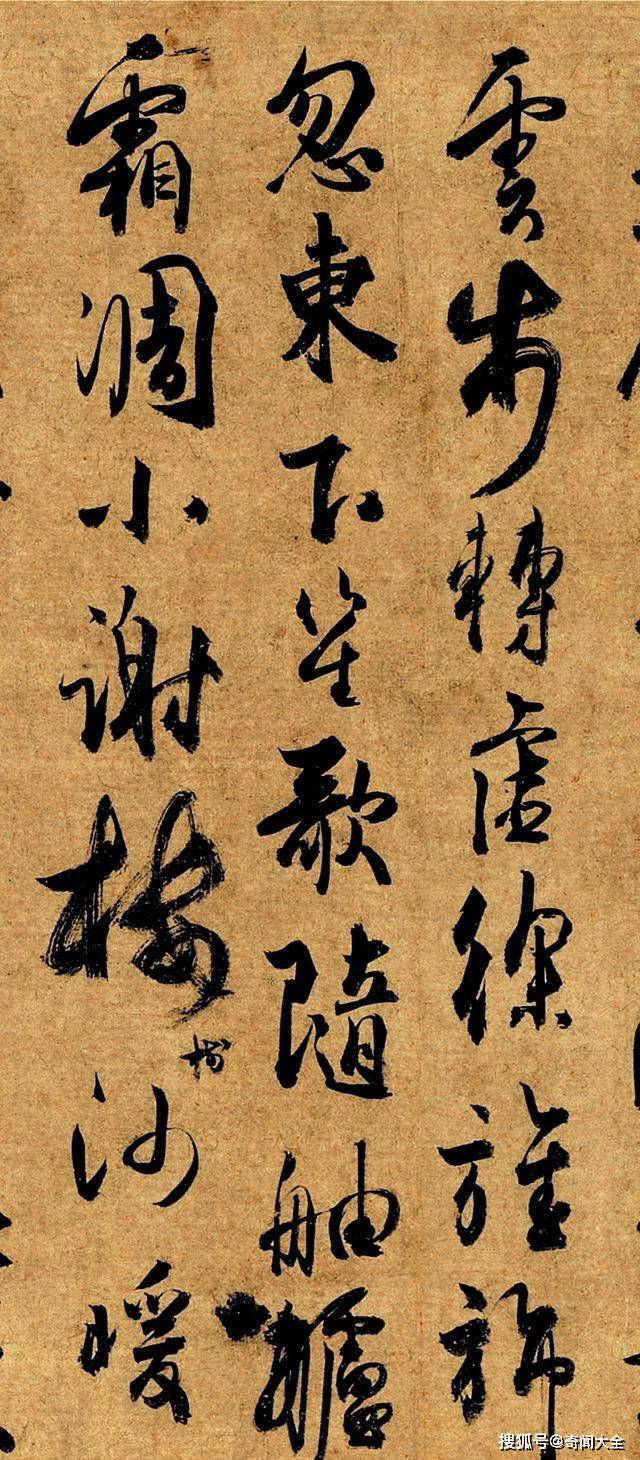 雲步轉虛徐旌旆
忽東下笙歌隨舳艫
霜凋小謝樓樹沙暖
搜狐号@奇闻大全